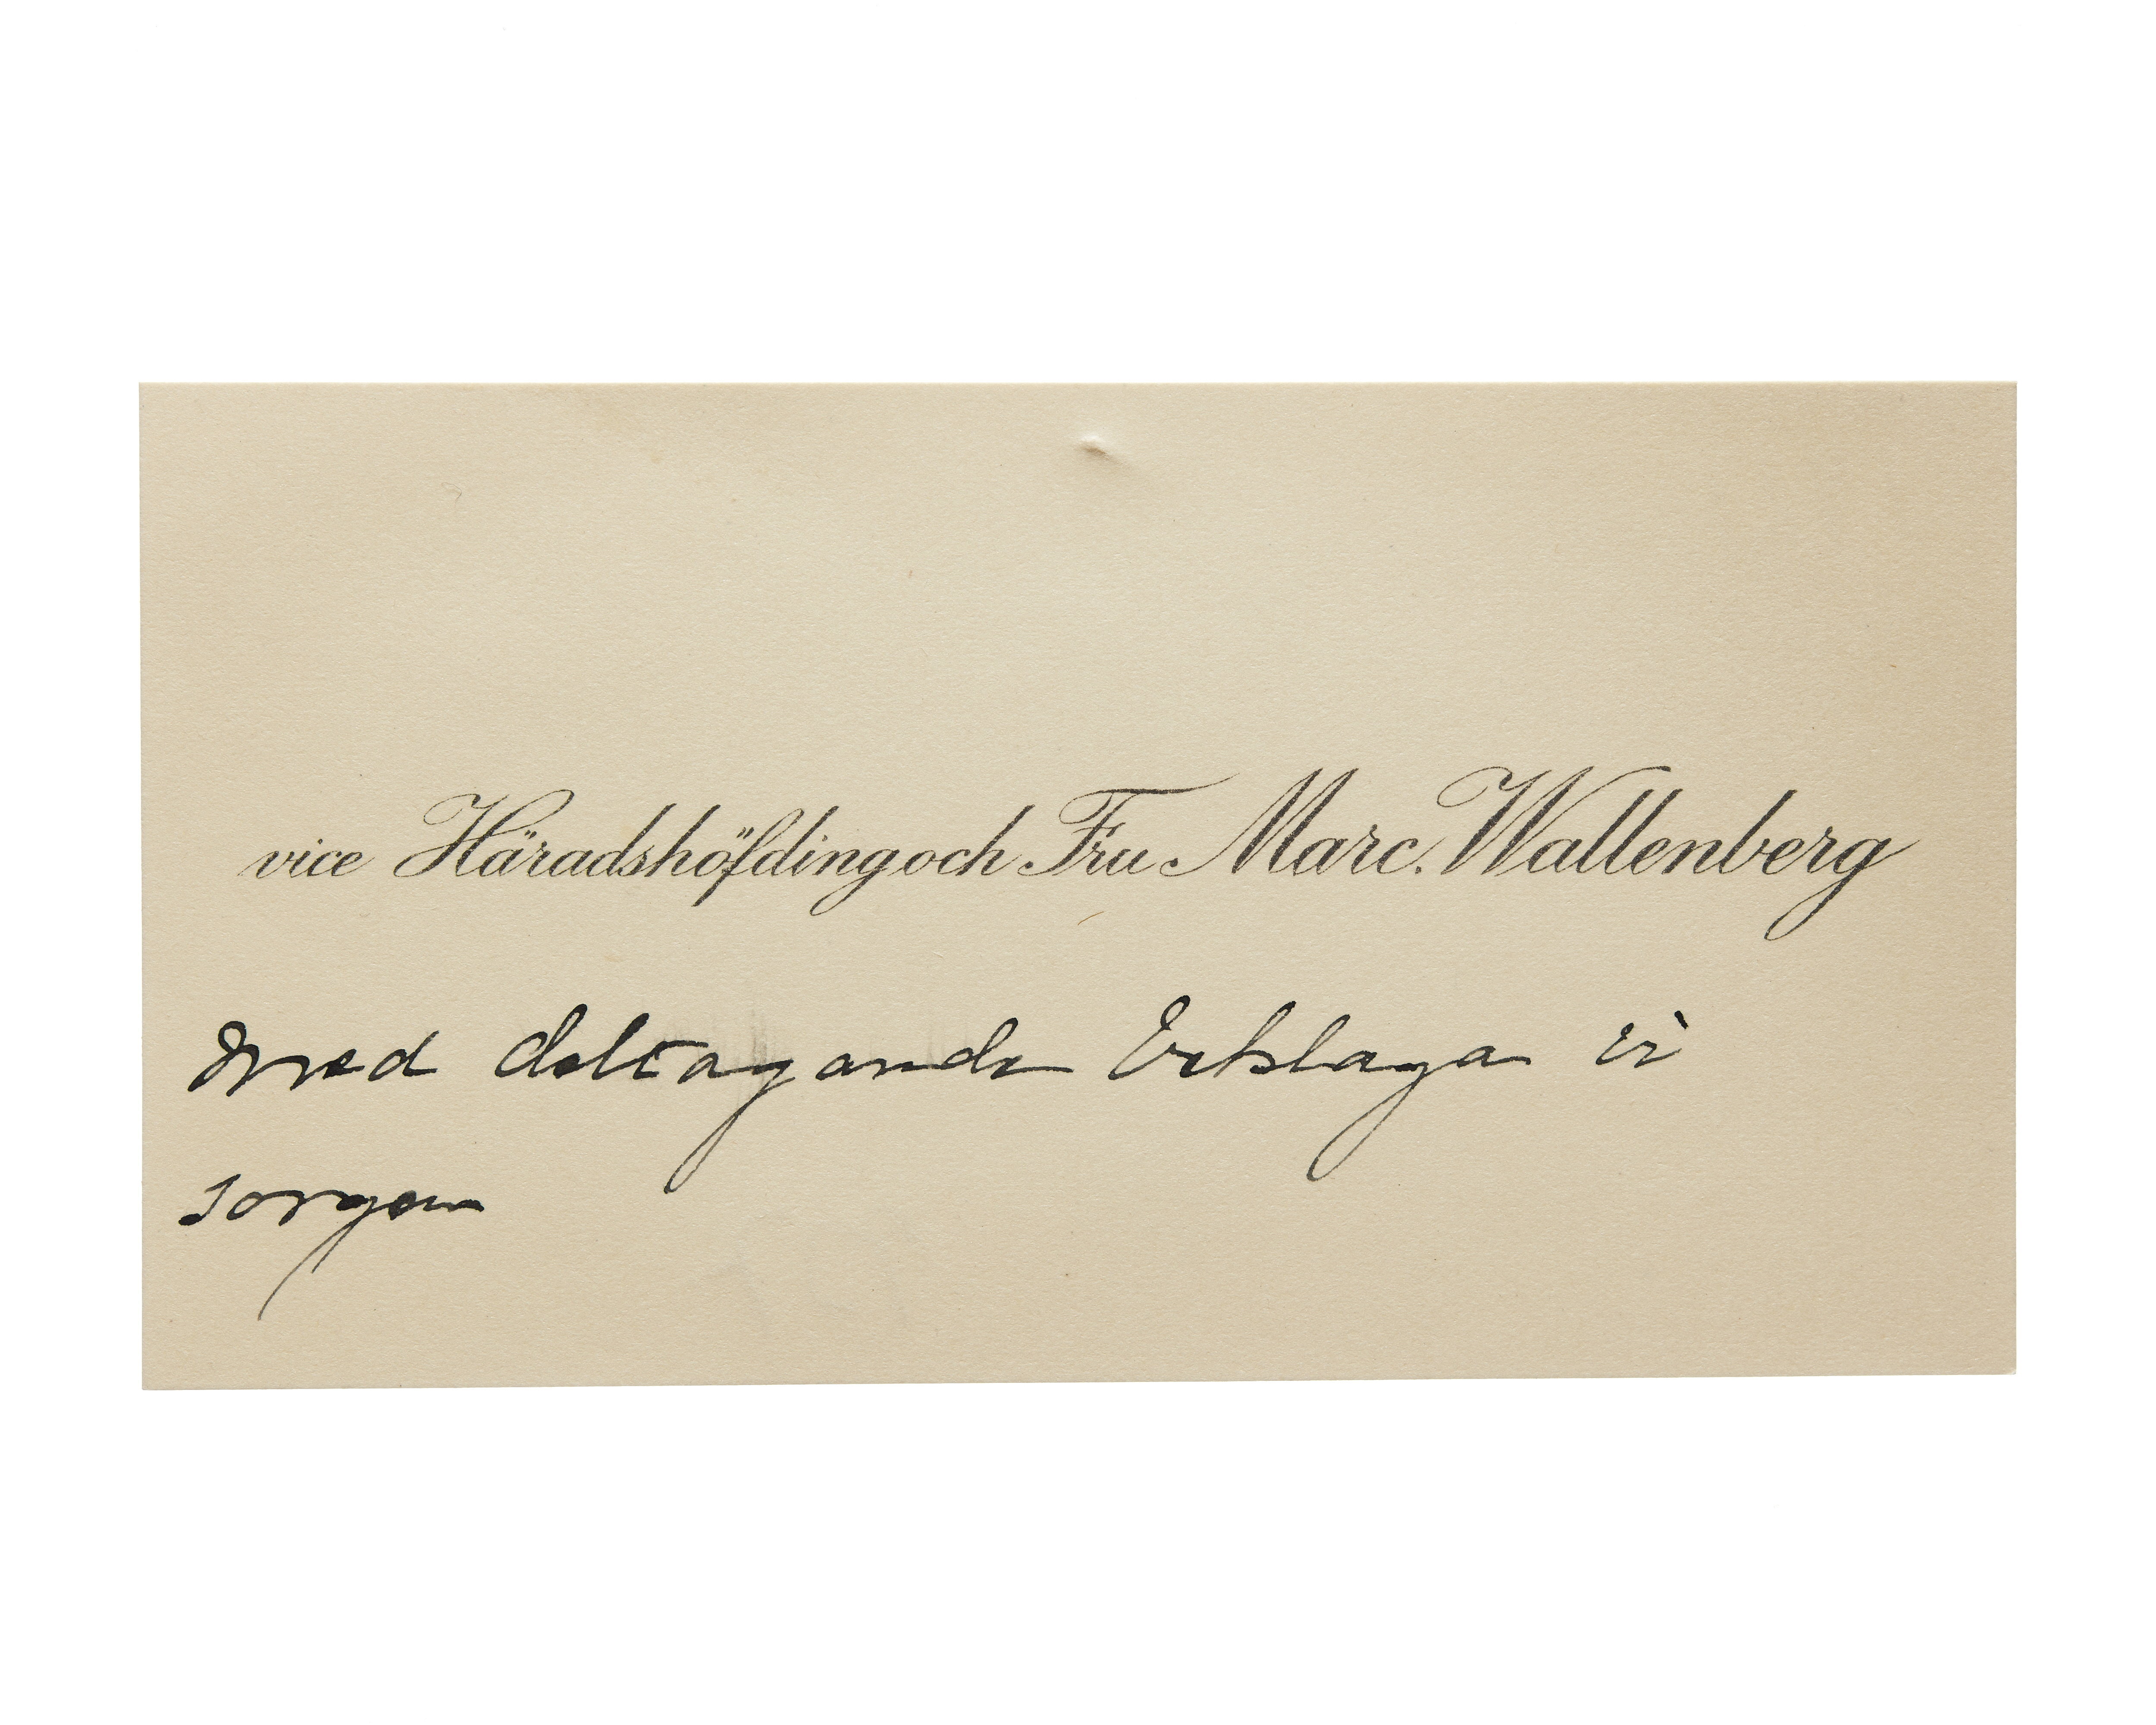 vice Häradshöfding och Fru Marc. Wallenberg
med deltagande beklaga vi
sorgen